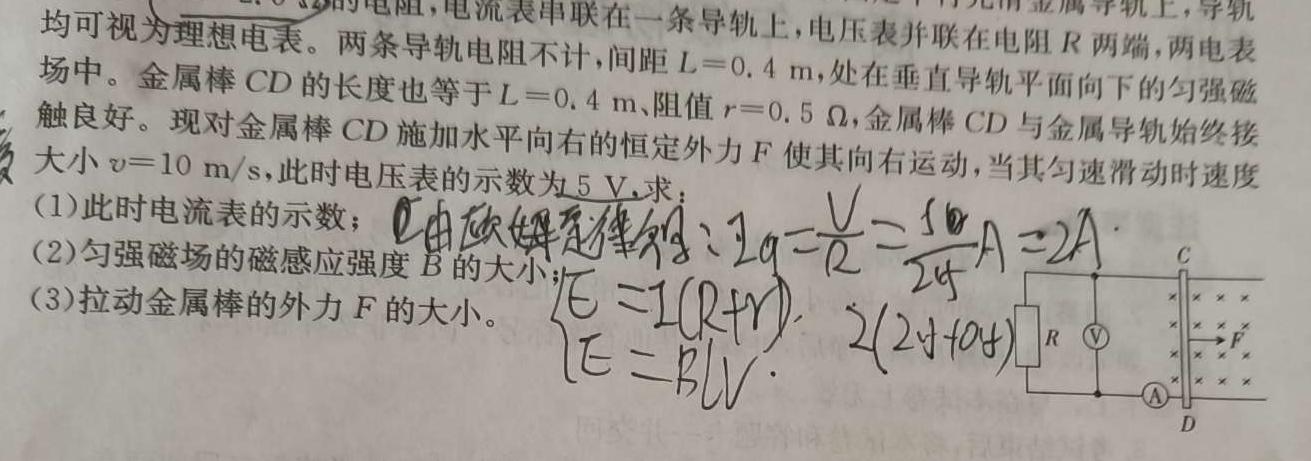 的电阻,电流表串联在一条导轨上,电压表并联在电阻 R 两端,两电表
均可视为理想电表。两条导轨电阻不计,间距 L=0.4 m,处在垂直导轨平面向下的匀强磁
场中。金属棒 CD 的长度也等于 L=0.4 m、阻值 r=0.5 Ω,金属棒 CD 与金属导轨始终接
触良好。现对金属棒 CD 施加水平向右的恒定外力 F 使其向右运动,当其匀速滑动时速度
大小 v=10 m/s,此时电压表的示数为 5 V.求:
(1)此时电流表的示数;
由欧姆定律知:
(2)匀强磁场的磁感应强度 B 的大小;
E=I(R+r).
(3)拉动金属棒的外力 F 的大小。
E=BLV.
C
R
V
F
A
D